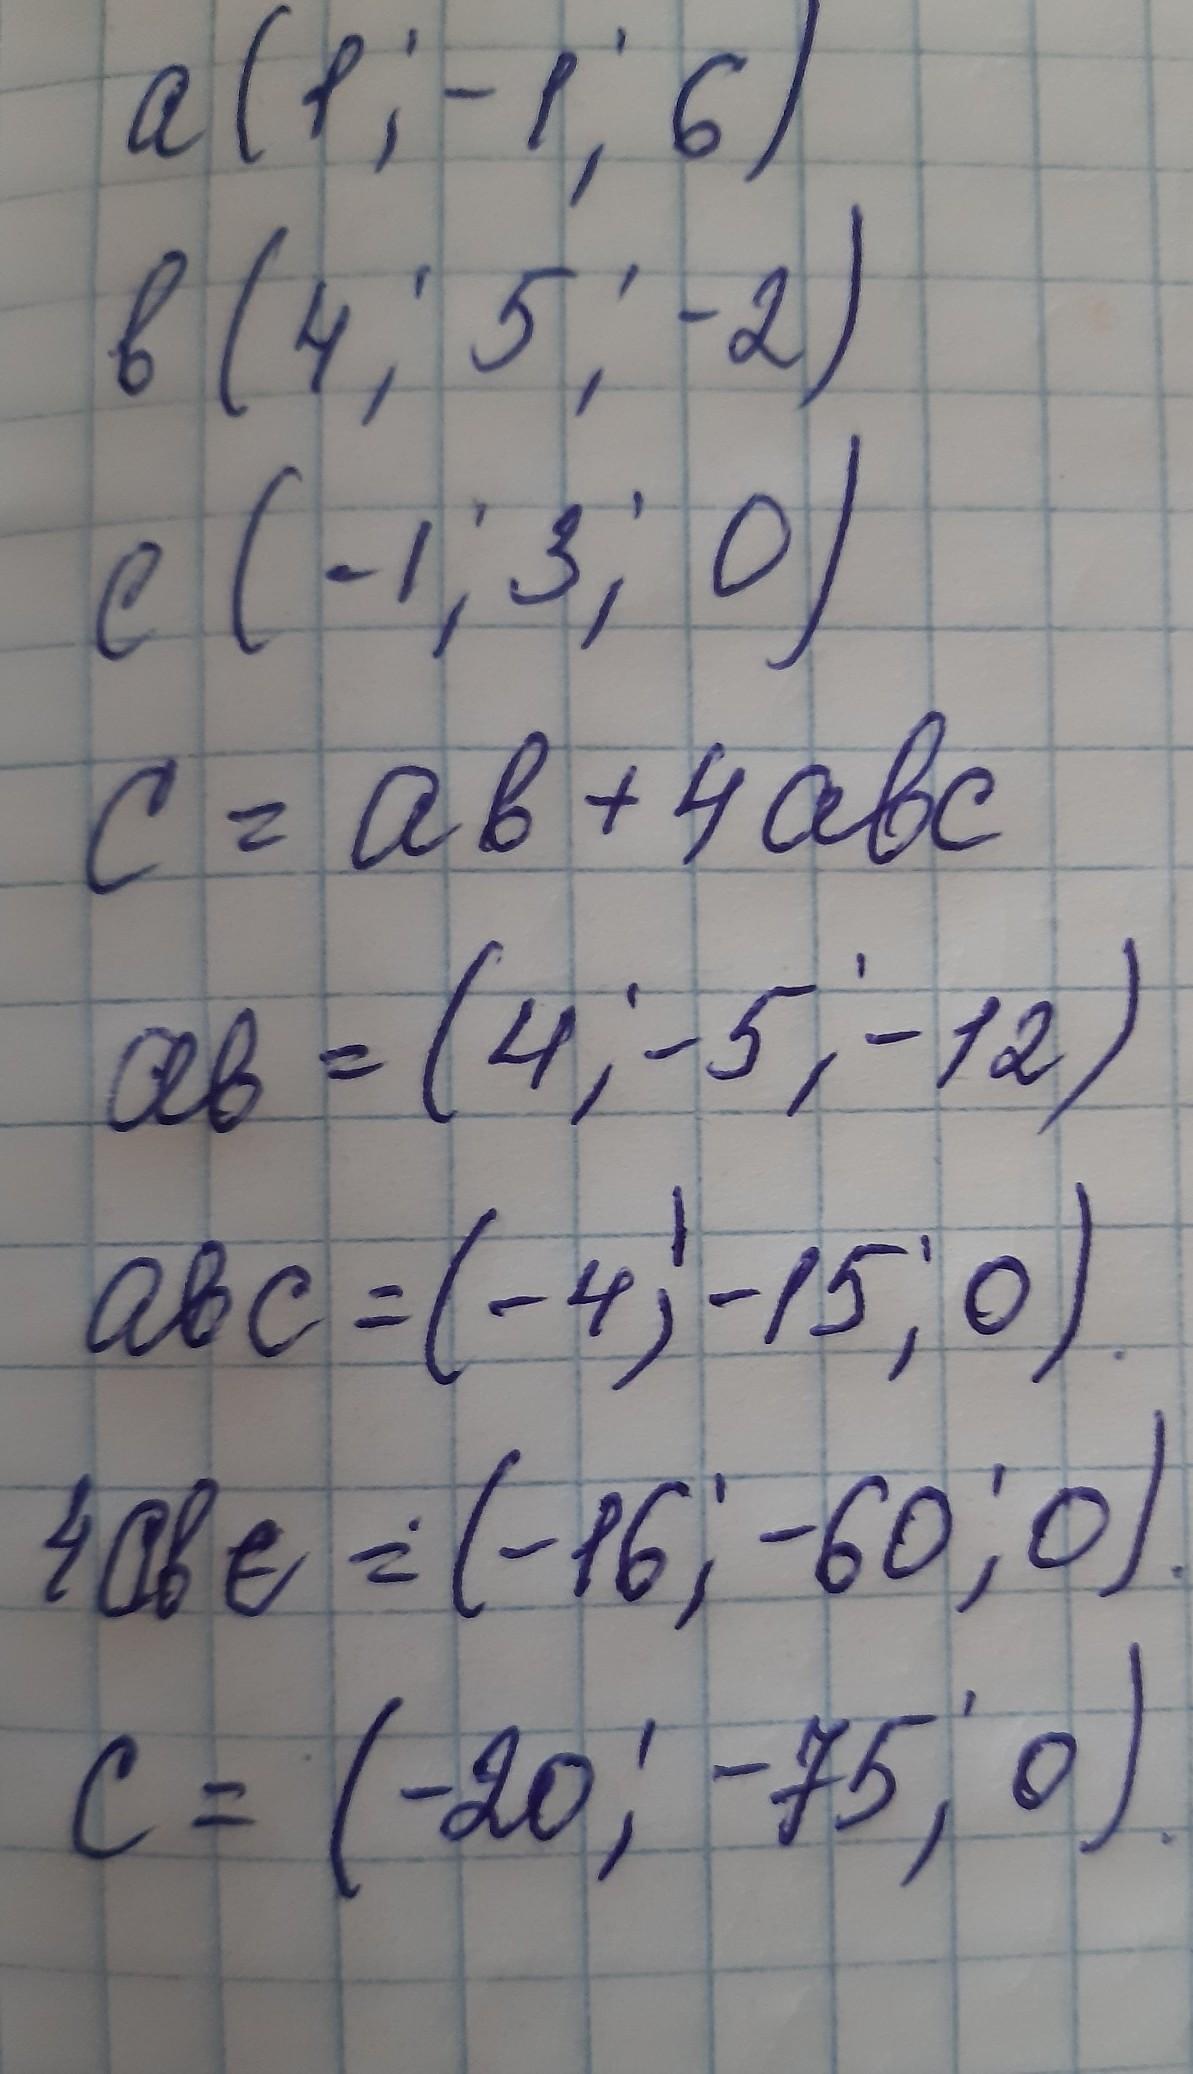 a(1; -1; 6)
в(4; 5; -2)
c(-1; 3; 0)
C = aв + 4aвc
aв = (4; -5; -12)
aвc = (-4; -15; 0).
4aвc = (-16; -60; 0).
C = (-20; -75; 0).